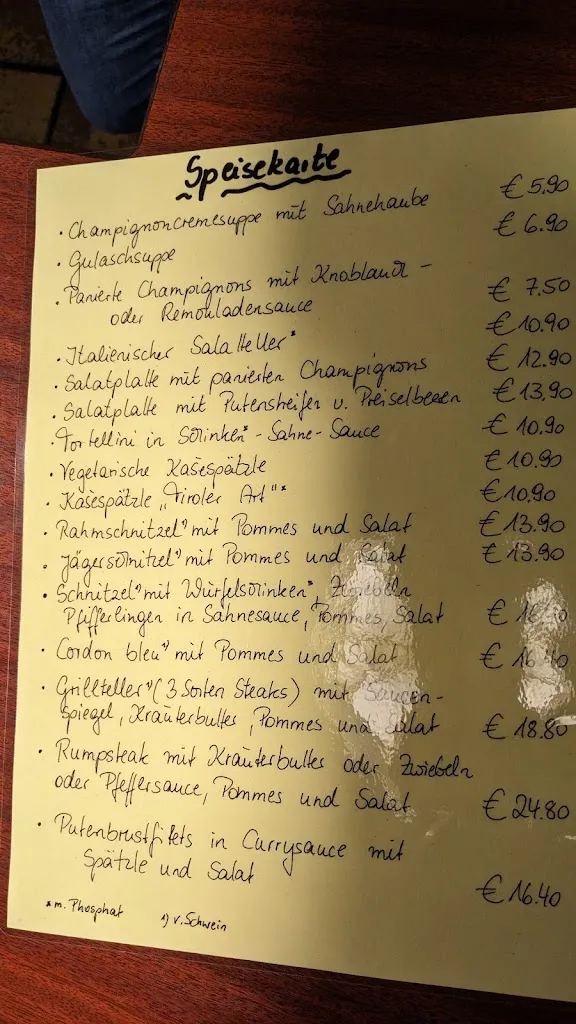 Speisekarte
· Champignoncremesuppe mit Sahnehaube € 5.90
· Gulaschsuppe € 6.90
· Panierte Champignons mit Knoblauch -
oder Remouladensauce € 7.50
· Italienischer Salatteller* € 10.90
· Salatplatte mit panierten Champignons € 12.90
· Salatplatte mit Putenstreifen u. Preiselbeeren € 13,90
· Tortellini in Schinken*-Sahne-Sauce € 10.90
· Vegetarische Käsespätzle € 10.90
· Käsespätzle „Tiroler Art"* € 10.90
· Rahmschnitzel¹⁾ mit Pommes und Salat € 13.90
· Jägerschnitzel¹⁾ mit Pommes und Salat € 13.90
· Schnitzel¹⁾ mit Würfelschinken*, Zwiebeln
Pfifferlingen in Sahnesauce, Pommes, Salat €
· Cordon bleu¹⁾ mit Pommes und Salat € 16.40
· Grillteller¹⁾ (3 Sorten Steaks) mit Saucen-
spiegel, Kräuterbutter, Pommes und Salat € 18.80
· Rumpsteak mit Kräuterbutter oder Zwiebeln
oder Pfeffersauce, Pommes und Salat € 24.80
· Putenbrustfilets in Currysauce mit
Spätzle und Salat € 16.40
* m. Phosphat 1) v. Schwein